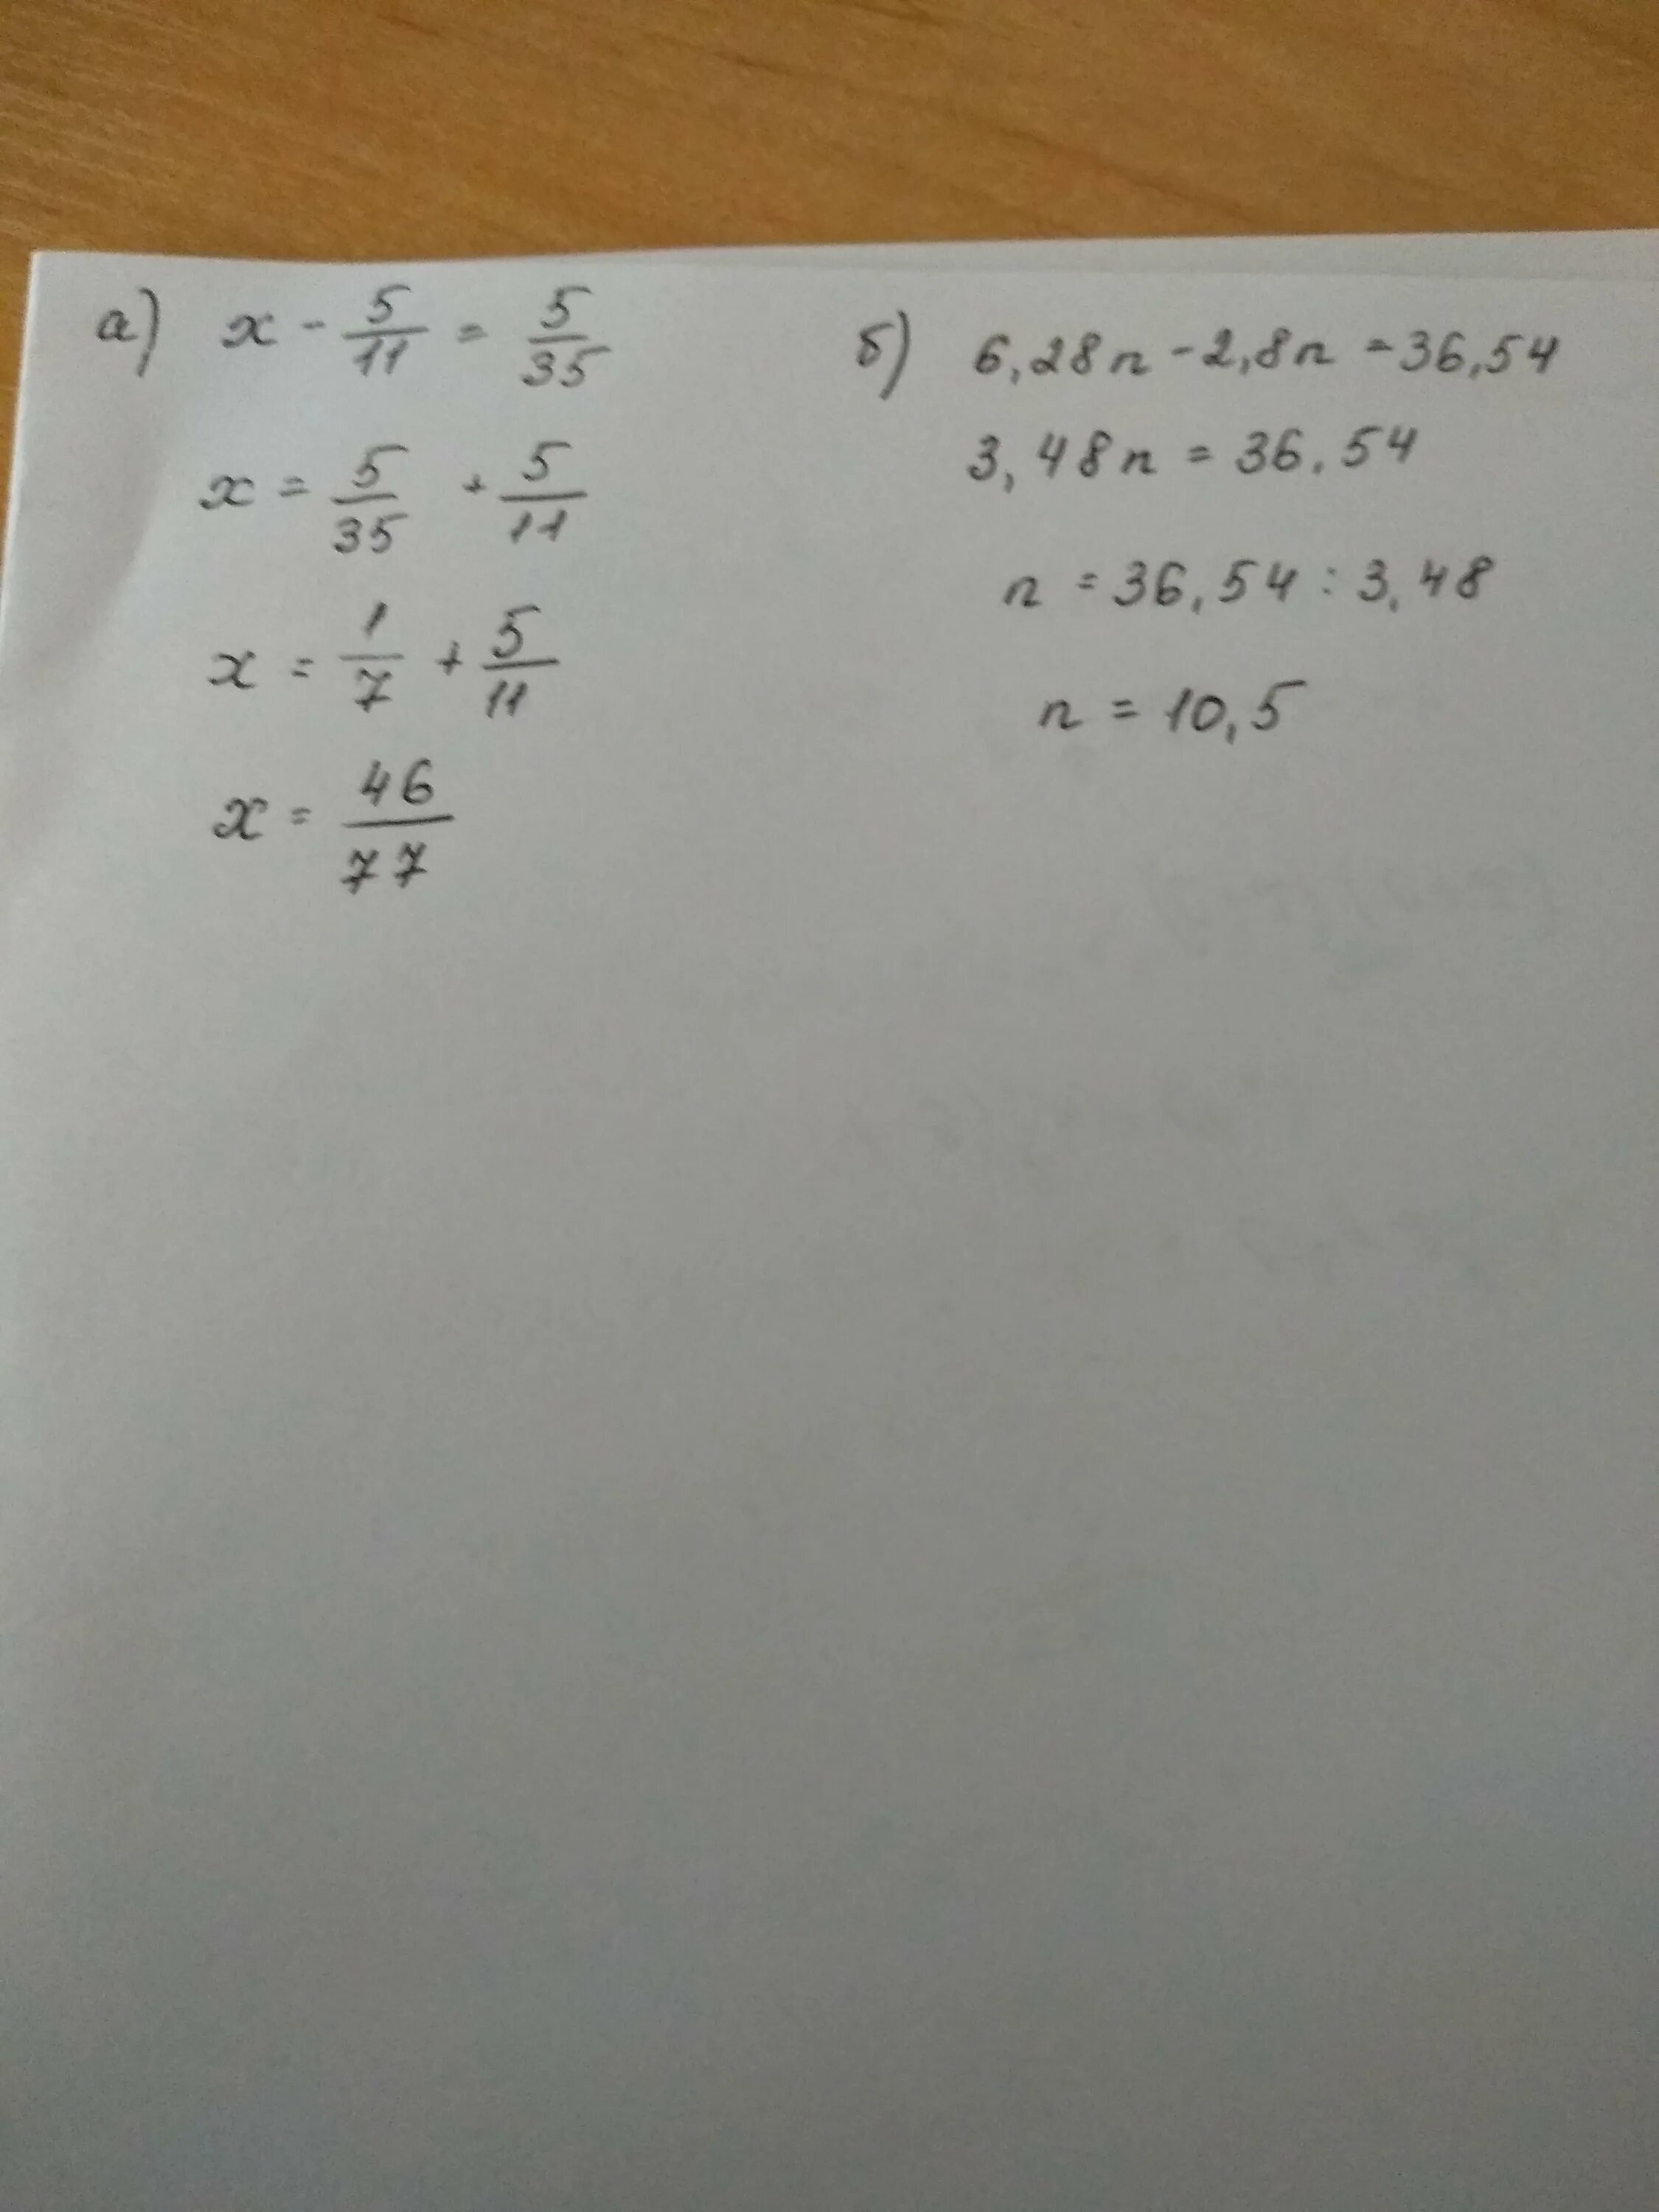 а) x - 5/11 = 5/35
x = 5/35 + 5/11
x = 1/7 + 5/11
x = 46/77
б) 6,28n - 2,8n = 36,54
3,48n = 36,54
n = 36,54 : 3,48
n = 10,5